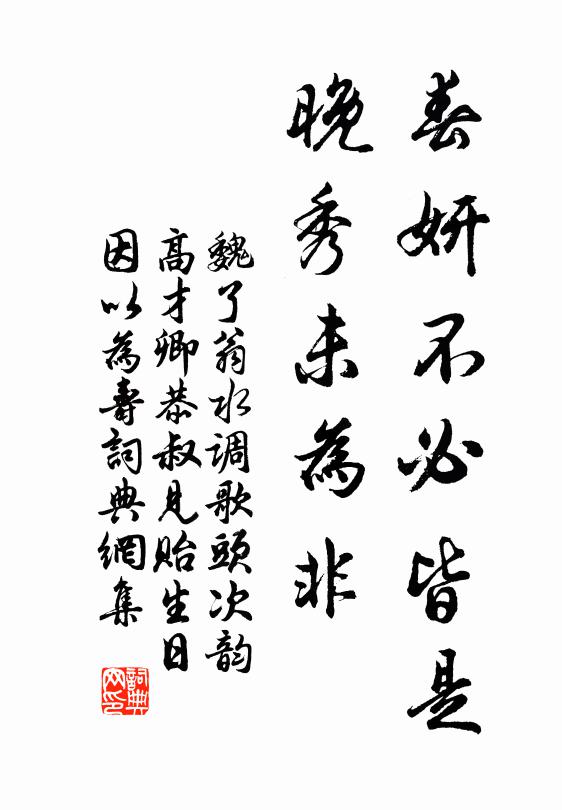 春妍不必皆是
晚秀未為非
魏了翁水调歌頭次韵
高才卿恭叔見貽生日
因以為壽詞典網集
詞典
网印